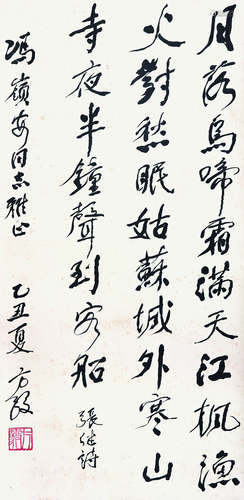 月落烏啼霜滿天江楓漁
火對愁眠姑蘇城外寒山
寺夜半鐘聲到客船 張继詩
馮嶺安同志雅正 乙丑夏 方毅